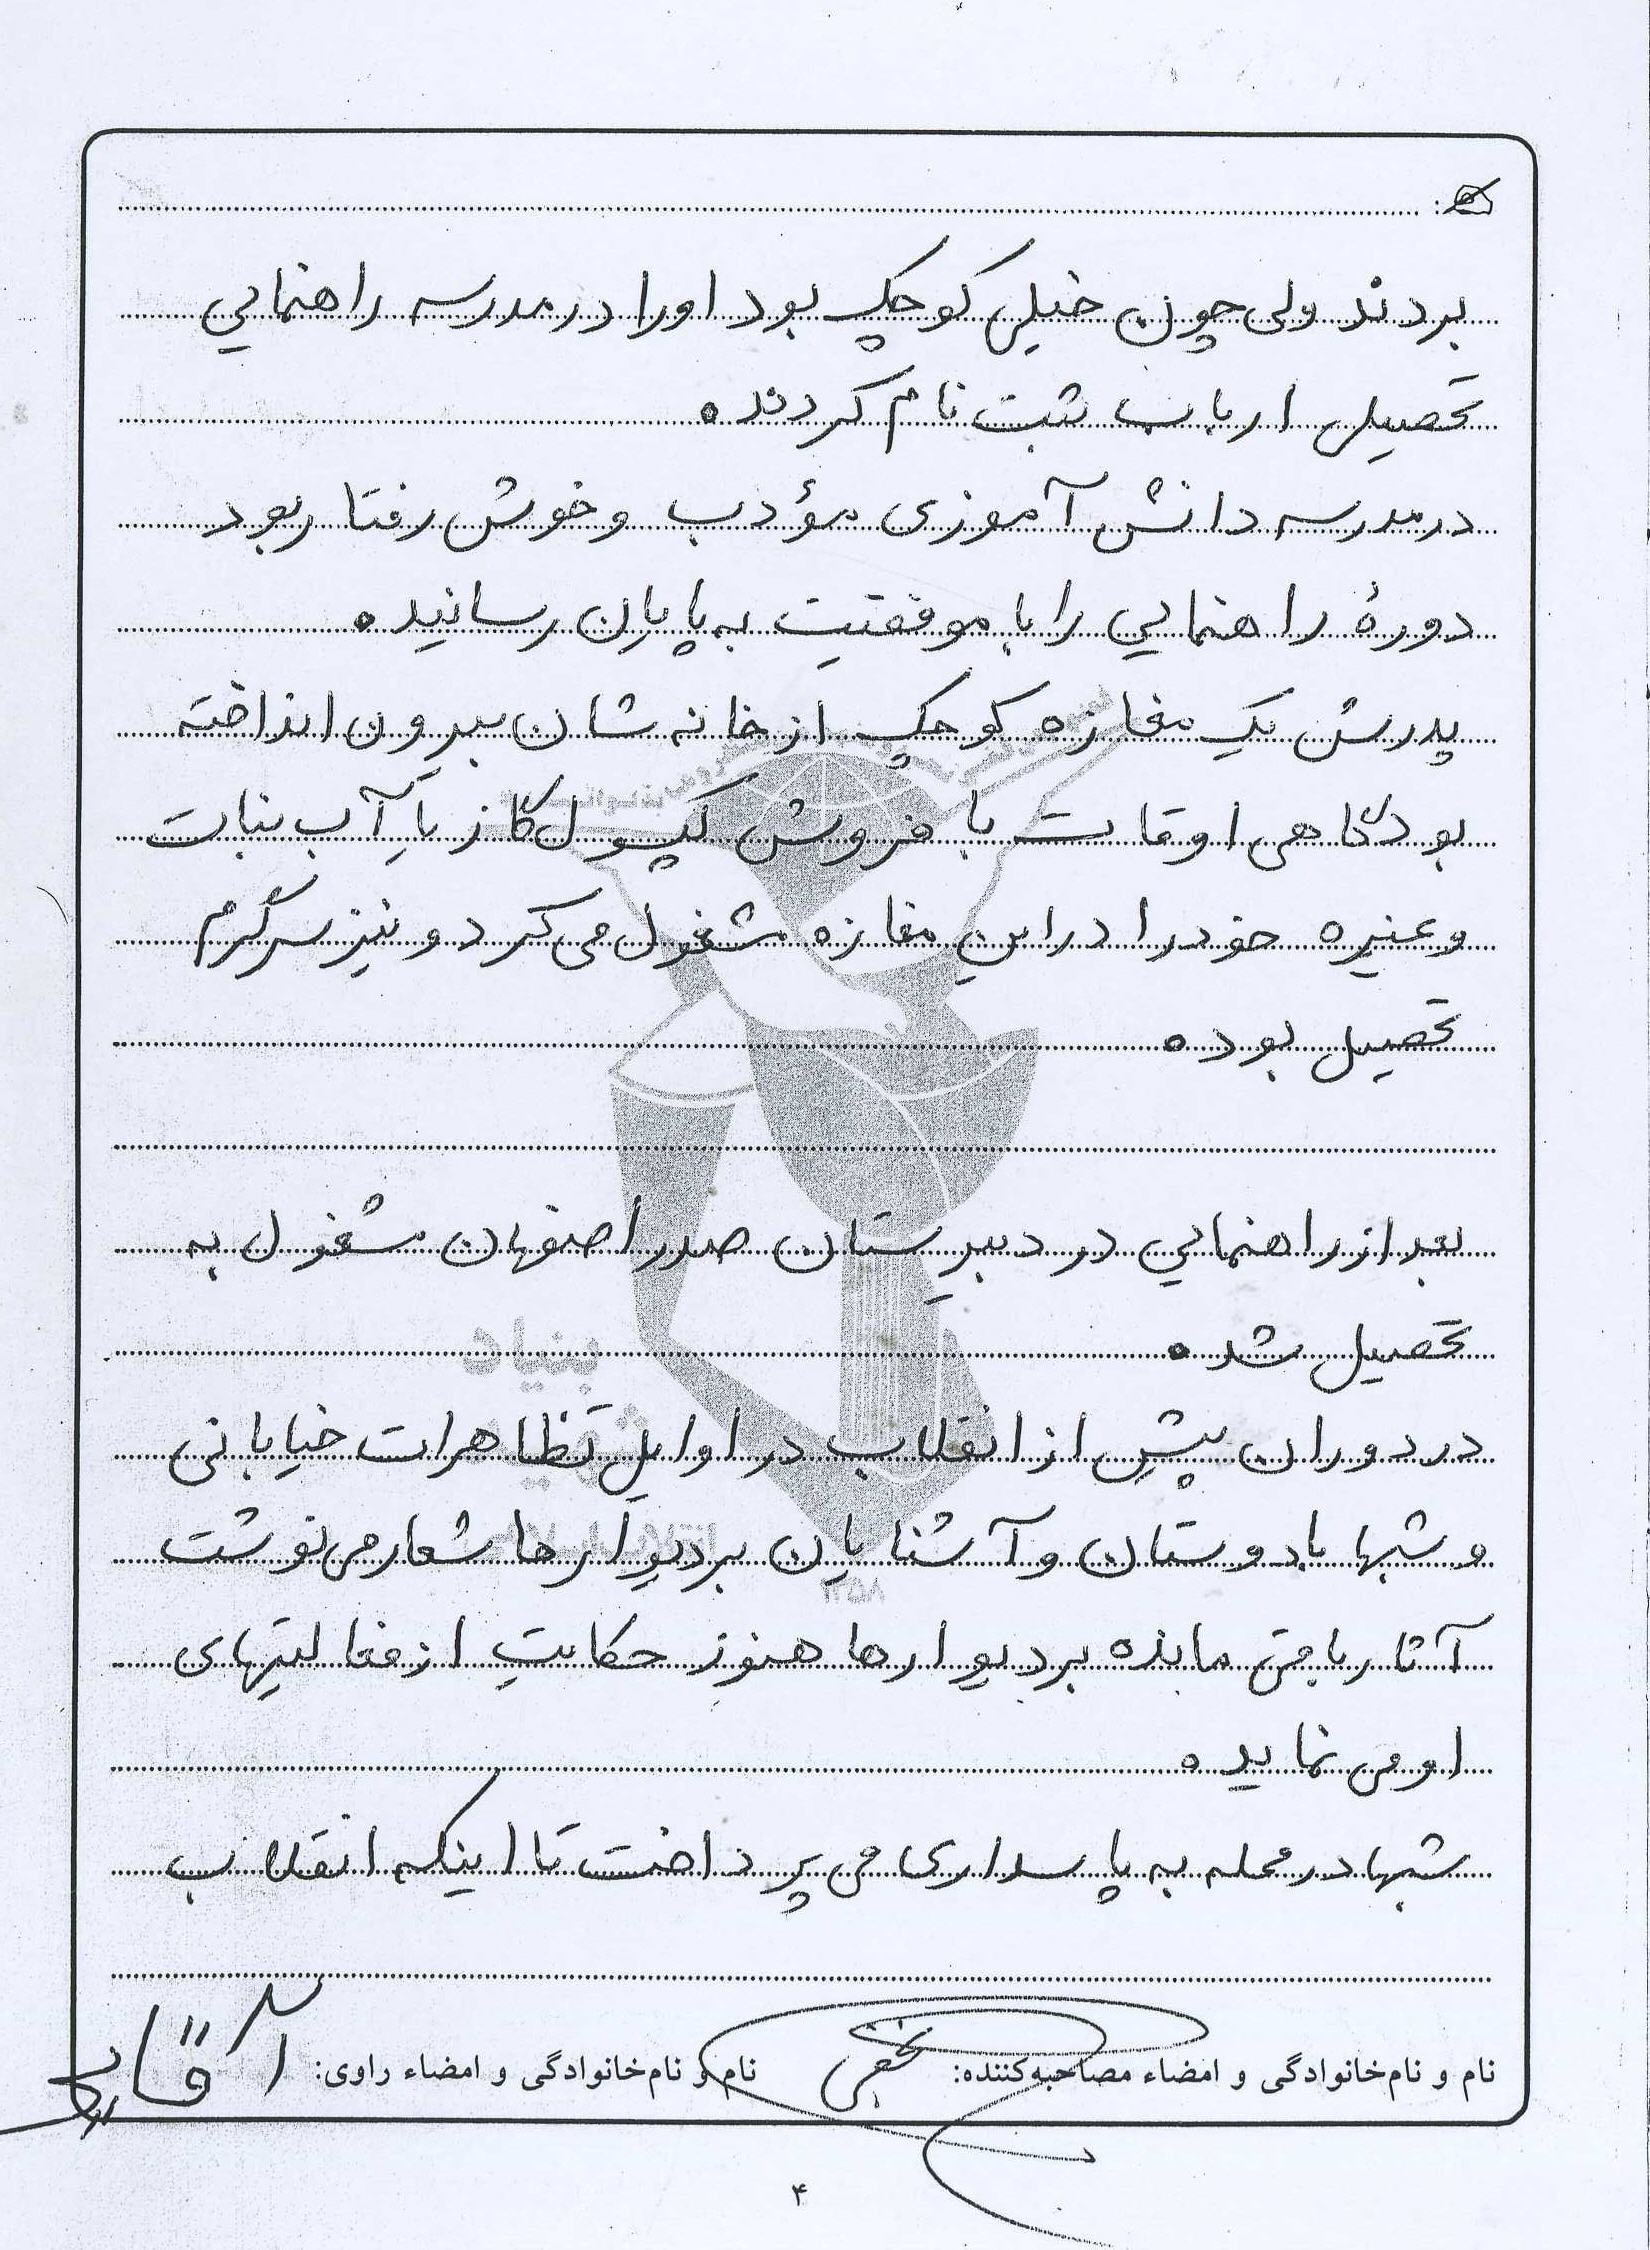 بردند ولی چون خیلی کوچک بود او را در مدرسه راهنمایی
تحصیلی ارباب ثبت نام کردند.
در مدرسه دانش آموزی مؤدب و خوش رفتار بود
دورهٔ راهنمایی را با موفقیت به پایان رسانید.
پدرش یک مغازه کوچک از خانه شان بیرون انداخته
بود گاهی اوقات با فروش کپسول گاز یا آب نبات
و غیره خود را در این مغازه مشغول می کرد و نیز سرگرم
تحصیل بود.
بعد از راهنمایی در دبیرستان صدر اصفهان مشغول به
تحصیل شد.
در دوران پیش از انقلاب در اوایل تظاهرات خیابانی
و شبها با دوستان و آشنایان بر دیوارها شعار می نوشت
آثار باقی مانده بر دیوارها هنوز حکایت از فعالیتهای
او می نماید.
شبها در محله به پاسداری می پرداخت تا اینکه انقلاب
نام و نام‌خانوادگی و امضاء مصاحبه‌کننده: نام و نام‌خانوادگی و امضاء راوی:
۴
بنیاد
۱۳۵۸